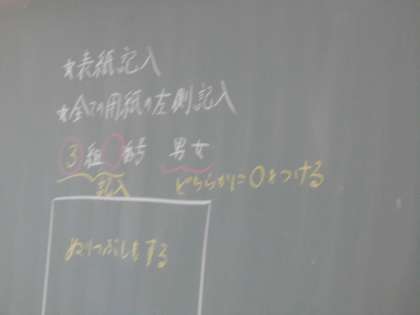 *表紙記入
*全ての用紙の左側記入
3組 番号 男女
記入 どちらかに○をつける
ぬりつぶしをする